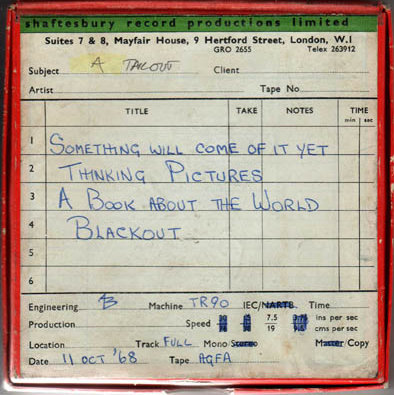 shaftesbury record productions limited
Suites 7 & 8, Mayfair House, 9 Hertford Street, London, W.1
GRO 2655 Telex 263912
Subject A TAILOUT Client
Artist Tape No
TITLE TAKE NOTES TIME
min sec
1 SOMETHING WILL COME OF IT YET
2 THINKING PICTURES
3 A BOOK ABOUT THE WORLD
4 BLACKOUT
5
6
Engineering Machine TR90 IEC/NARTB Time
Production Speed 7.5 ins per sec
19 cms per sec
Location Track FULL Mono Stereo Master/Copy
Date 11 OCT '68 Tape AGFA